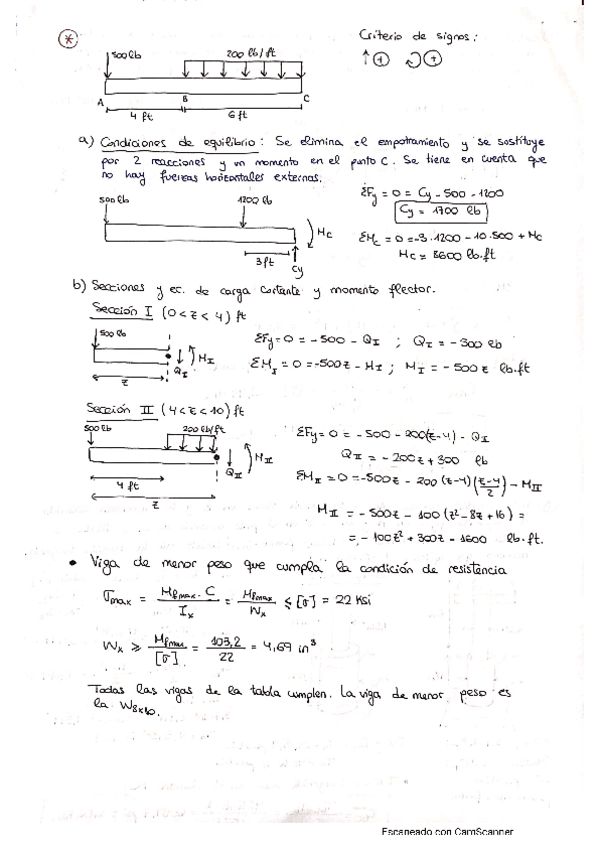 *
Criterio de signos:
↑ + ↻ +
500 lb
200 lb/ft
A B C
4 ft 6 ft
a) Condiciones de equilibrio: Se elimina el empotramiento y se sostituye
por 2 reacciones y un momento en el punto C. Se tiene en cuenta que
no hay fuerzas horizontales externas.
500 lb 1200 lb
Mc
3 ft
Cy
ΣFy = 0 = Cy - 500 - 1200
Cy = 1700 lb
ΣMc = 0 = -3·1200 - 10·500 + Mc
Mc = 8600 lb·ft
b) Secciones y ec. de carga cortante y momento flector.
Sección I (0 < z < 4) ft
500 lb
MI
QI
z
ΣFy = 0 = - 500 - QI ; QI = - 500 lb
ΣMI = 0 = -500z - MI ; MI = - 500 z lb·ft
Sección II (4 < z < 10) ft
500 lb 200 lb/ft
MII
QII
4 ft
z
ΣFy = 0 = - 500 - 200(z-4) - QII
QII = - 200z + 300 lb
ΣMII = 0 = -500z - 200 (z-4)((z-4)/2) - MII
MII = - 500z - 100 (z² - 8z + 16) =
= - 100z² + 300z - 1600 lb·ft.
• Viga de menor peso que cumpla la condición de resistencia
σmax = Mfmax · C / Ix = Mfmax / Wx ≤ [σ] = 22 Ksi
Wx ≥ Mfmax / [σ] = 103,2 / 22 = 4,69 in³
Todas las vigas de la tabla cumplen. La viga de menor peso es
la W8x10.
Escaneado con CamScanner